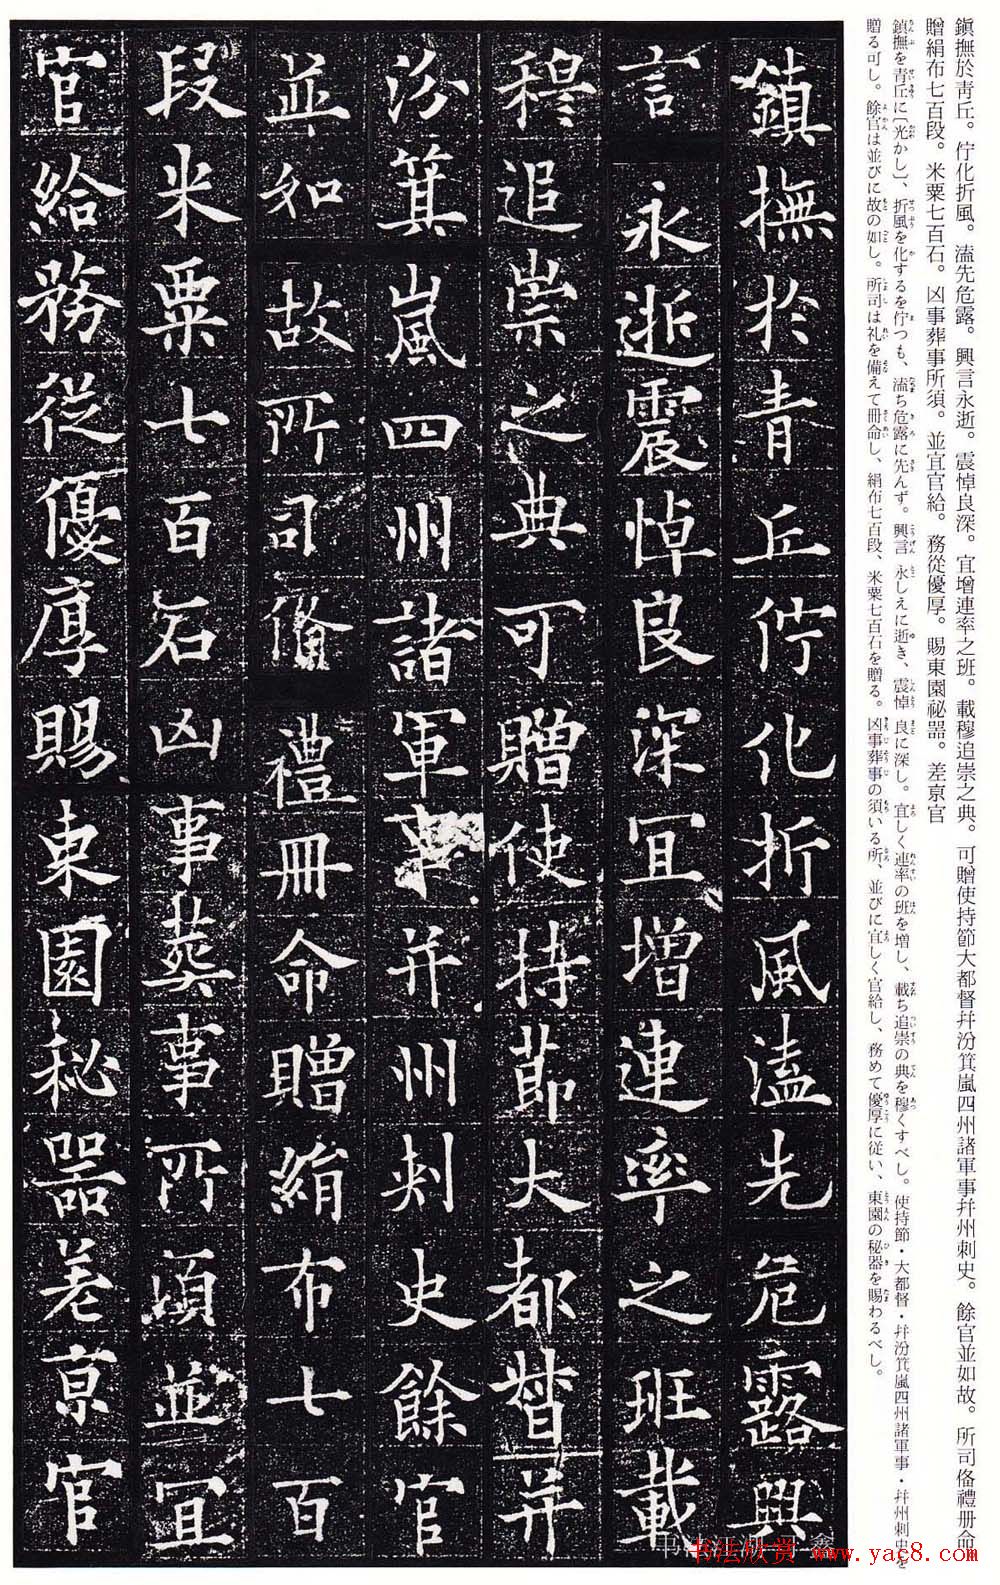 鎮撫於靑丘。佇化折風。溘先危露。興言永逝。震悼良深。宜增連率之班。載穆追崇之典。可贈使持節大都督幷汾箕嵐四州諸軍事幷州刺史。餘官並如故。所司俻禮册命
贈絹布七百段。米粟七百石。凶事葬事所須。並宜官給。務從優厚。賜東園祕器。差京官
鎮撫を青丘に〔光かし〕、折風を化するを佇つも、溘ち危露に先んず。興言 永しえに逝き、震悼 良に深し。宜しく連率の班を増し、載ち追崇の典を穆くすべし。使持節・大都督・幷汾箕嵐四州諸軍事・幷州刺史を
贈る可し。餘官は並びに故の如し。所司は礼を備えて冊命し、絹布七百段、米粟七百石を贈る。凶事葬事の須いる所、並びに宜しく官給し、務めて優厚に従い、東園の秘器を賜わるべし。
鎮撫於青丘佇化折風溘先危露興
言永逝震悼良深宜增連率之班載
穆追崇之典可贈使持節大都督并
汾箕嵐四州諸軍事并州刺史餘官
並如故所司俻禮冊命贈絹布七百
段米粟七百石凶事葬事所須並宜
官給務從優厚賜東園秘器差京官
书法欣赏 www.yac8.com